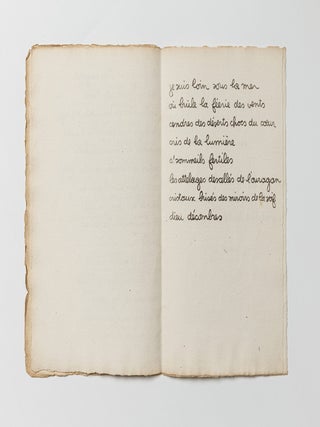 je suis loin sous la mer
où brûle la féerie des vents
cendres des déserts chocs du cœur
cris de la lumière
sommeils fertiles
les attelages dessellés de l'ouragan
cristaux brisés des miroirs de la soif
dieu décombres